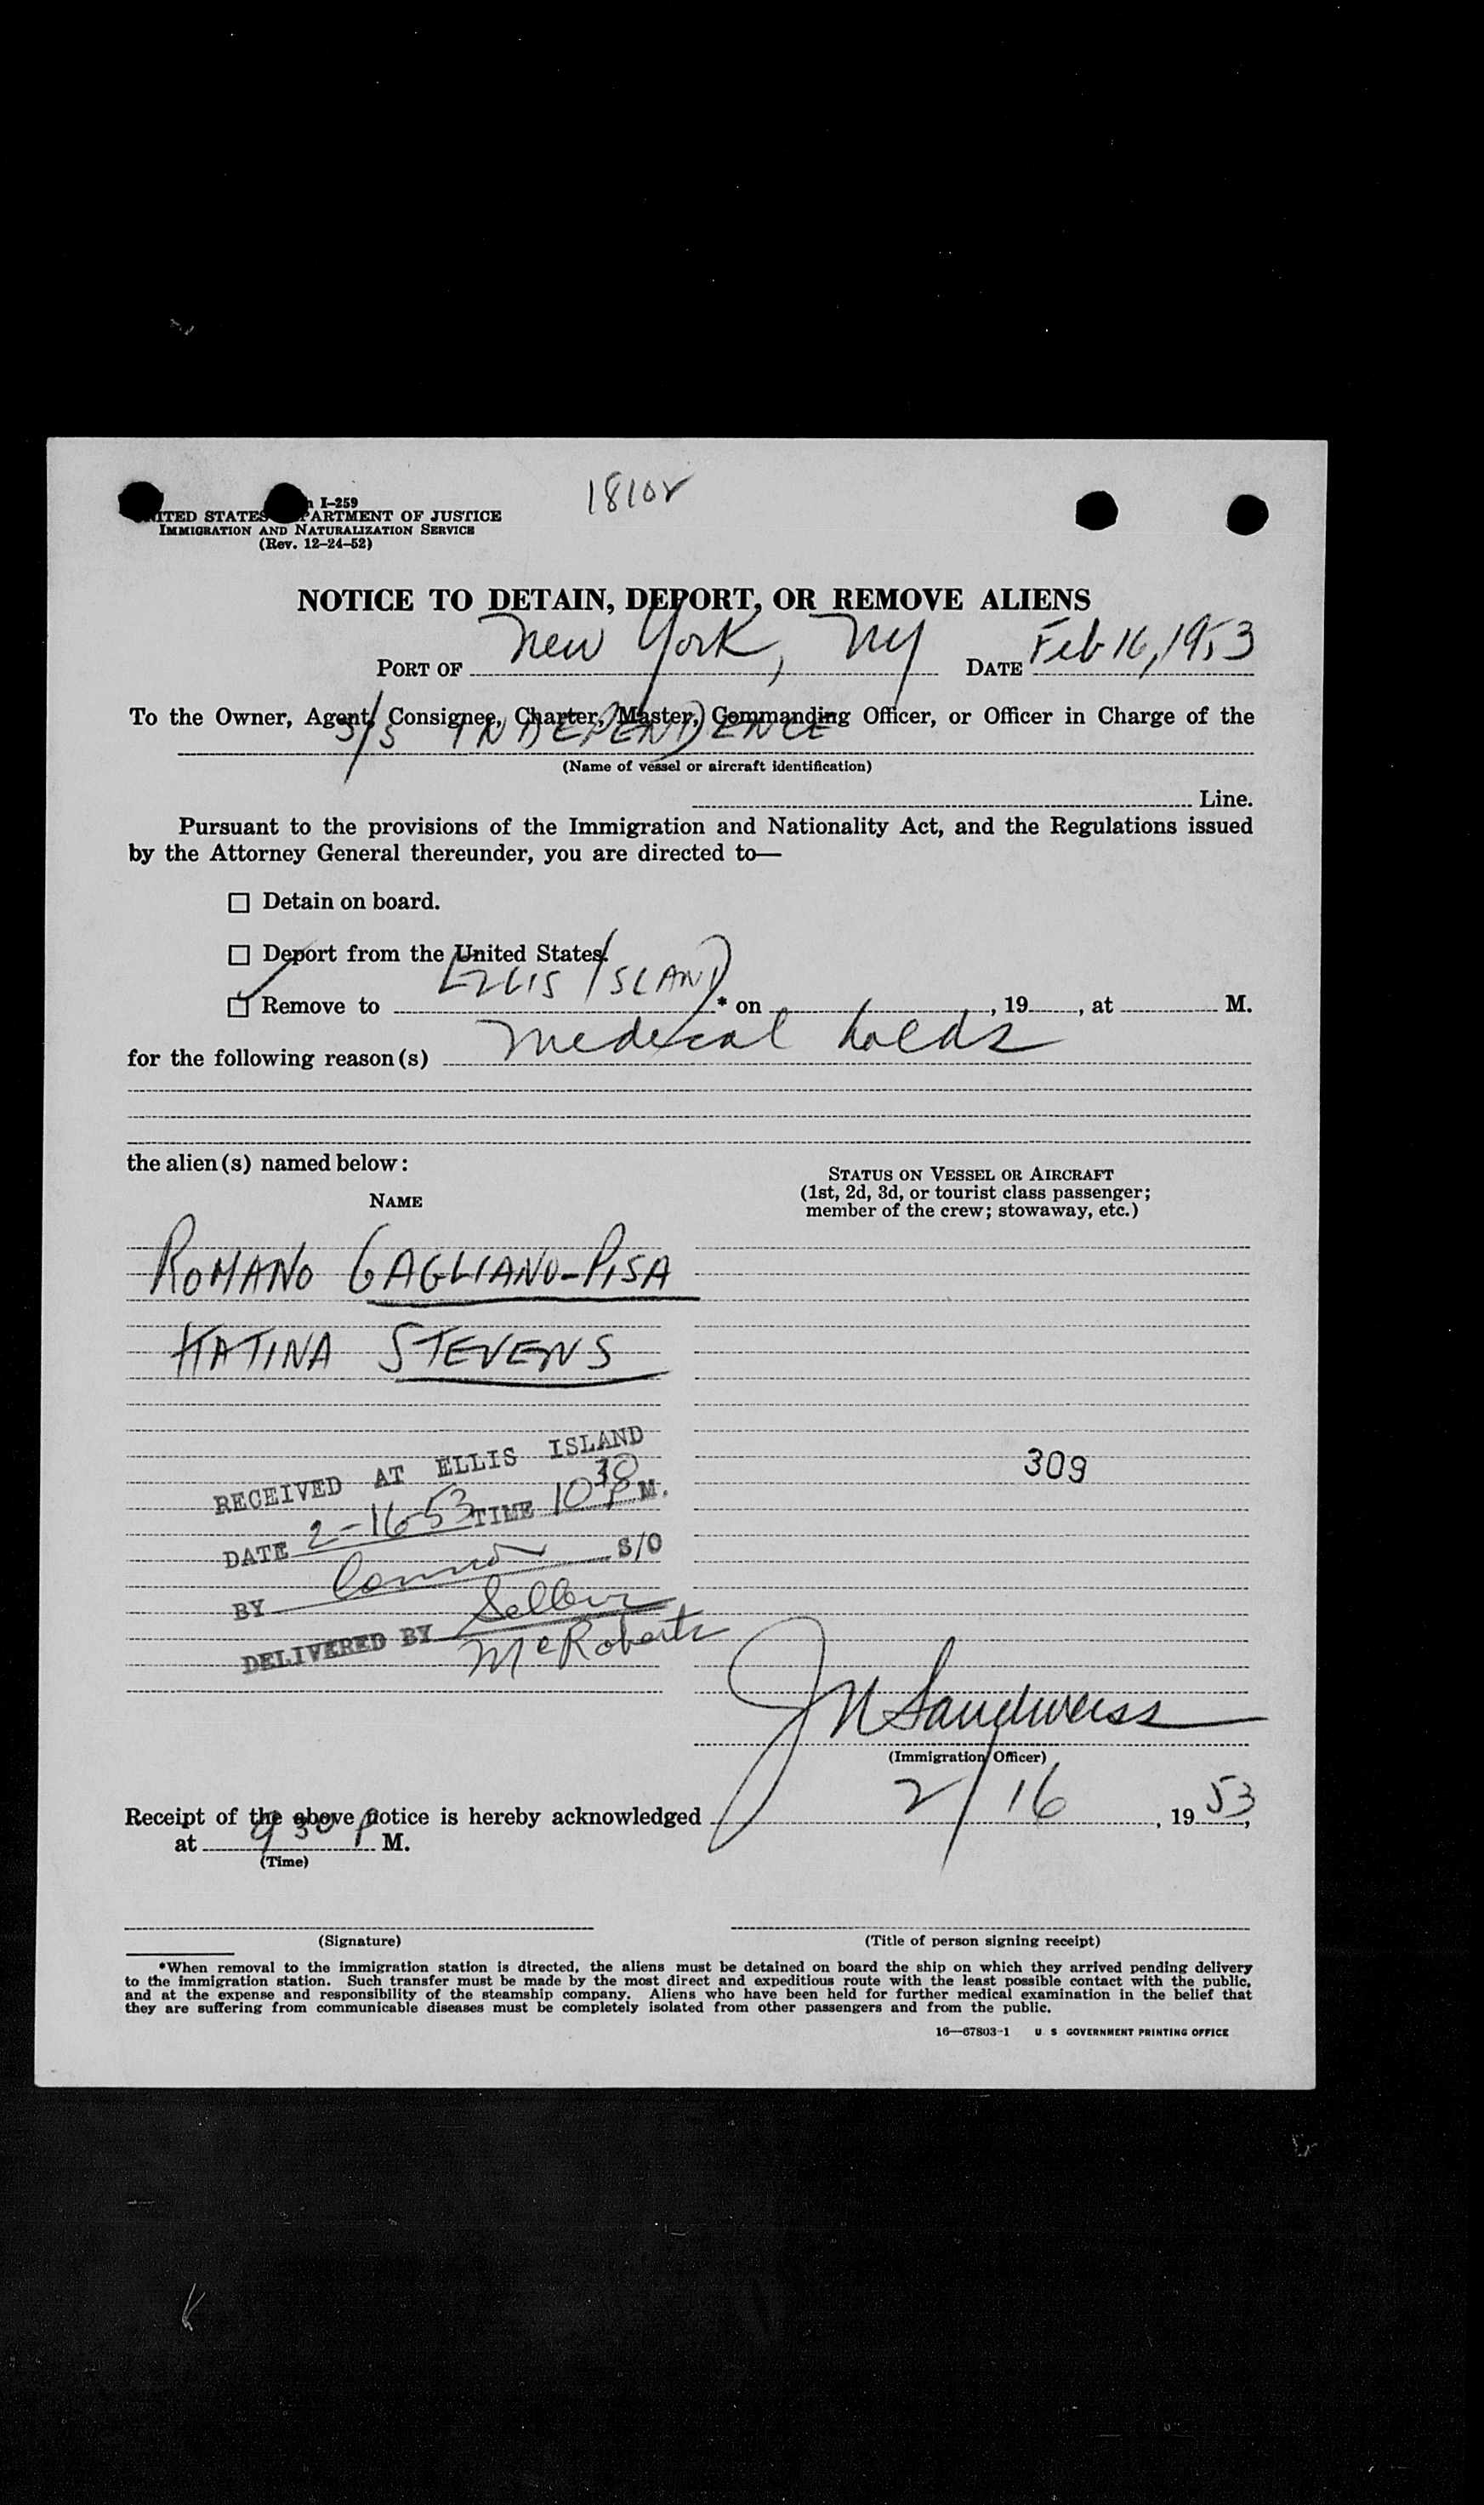 I-259
UNITED STATES DEPARTMENT OF JUSTICE
IMMIGRATION AND NATURALIZATION SERVICE
(Rev. 12-24-52)
NOTICE TO DETAIN, DEPORT, OR REMOVE ALIENS
PORT OF New York, NY DATE Feb 16, 1953
To the Owner, Agent, Consignee, Charter, Master, Commanding Officer, or Officer in Charge of the
S/S INDEPENDENCE
(Name of vessel or aircraft identification)
Line.
Pursuant to the provisions of the Immigration and Nationality Act, and the Regulations issued
by the Attorney General thereunder, you are directed to—
☐ Detain on board.
☐ Deport from the United States.
☑ Remove to ELLIS ISLAND * on , 19 , at M.
for the following reason(s) Medical holds
the alien(s) named below:
NAME
STATUS ON VESSEL OR AIRCRAFT
(1st, 2d, 3d, or tourist class passenger;
member of the crew; stowaway, etc.)
ROMANO GAGLIANO-PISA
KATINA STEVENS
309
RECEIVED AT ELLIS ISLAND
DATE 2-16-53 TIME 10 30 P M.
BY S/O
DELIVERED BY
McRoberts
J N Sandweiss
(Immigration Officer)
Receipt of the above notice is hereby acknowledged 2/16, 19 53,
at 9 30 P M.
(Time)
(Signature)
(Title of person signing receipt)
*When removal to the immigration station is directed, the aliens must be detained on board the ship on which they arrived pending delivery
to the immigration station. Such transfer must be made by the most direct and expeditious route with the least possible contact with the public,
and at the expense and responsibility of the steamship company. Aliens who have been held for further medical examination in the belief that
they are suffering from communicable diseases must be completely isolated from other passengers and from the public.
16—67803-1 U S GOVERNMENT PRINTING OFFICE